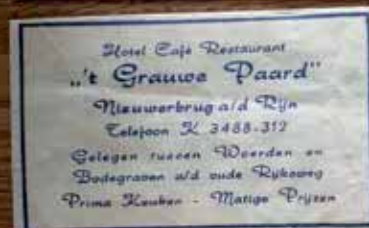 Hotel Café Restaurant
„'t Grauwe Paard"
Nieuwerbrug a/d Rijn
Telefoon K 3488-312
Gelegen tussen Woerden en
Bodegraven a/d oude Rijksweg
Prima Keuken - Matige Prijzen